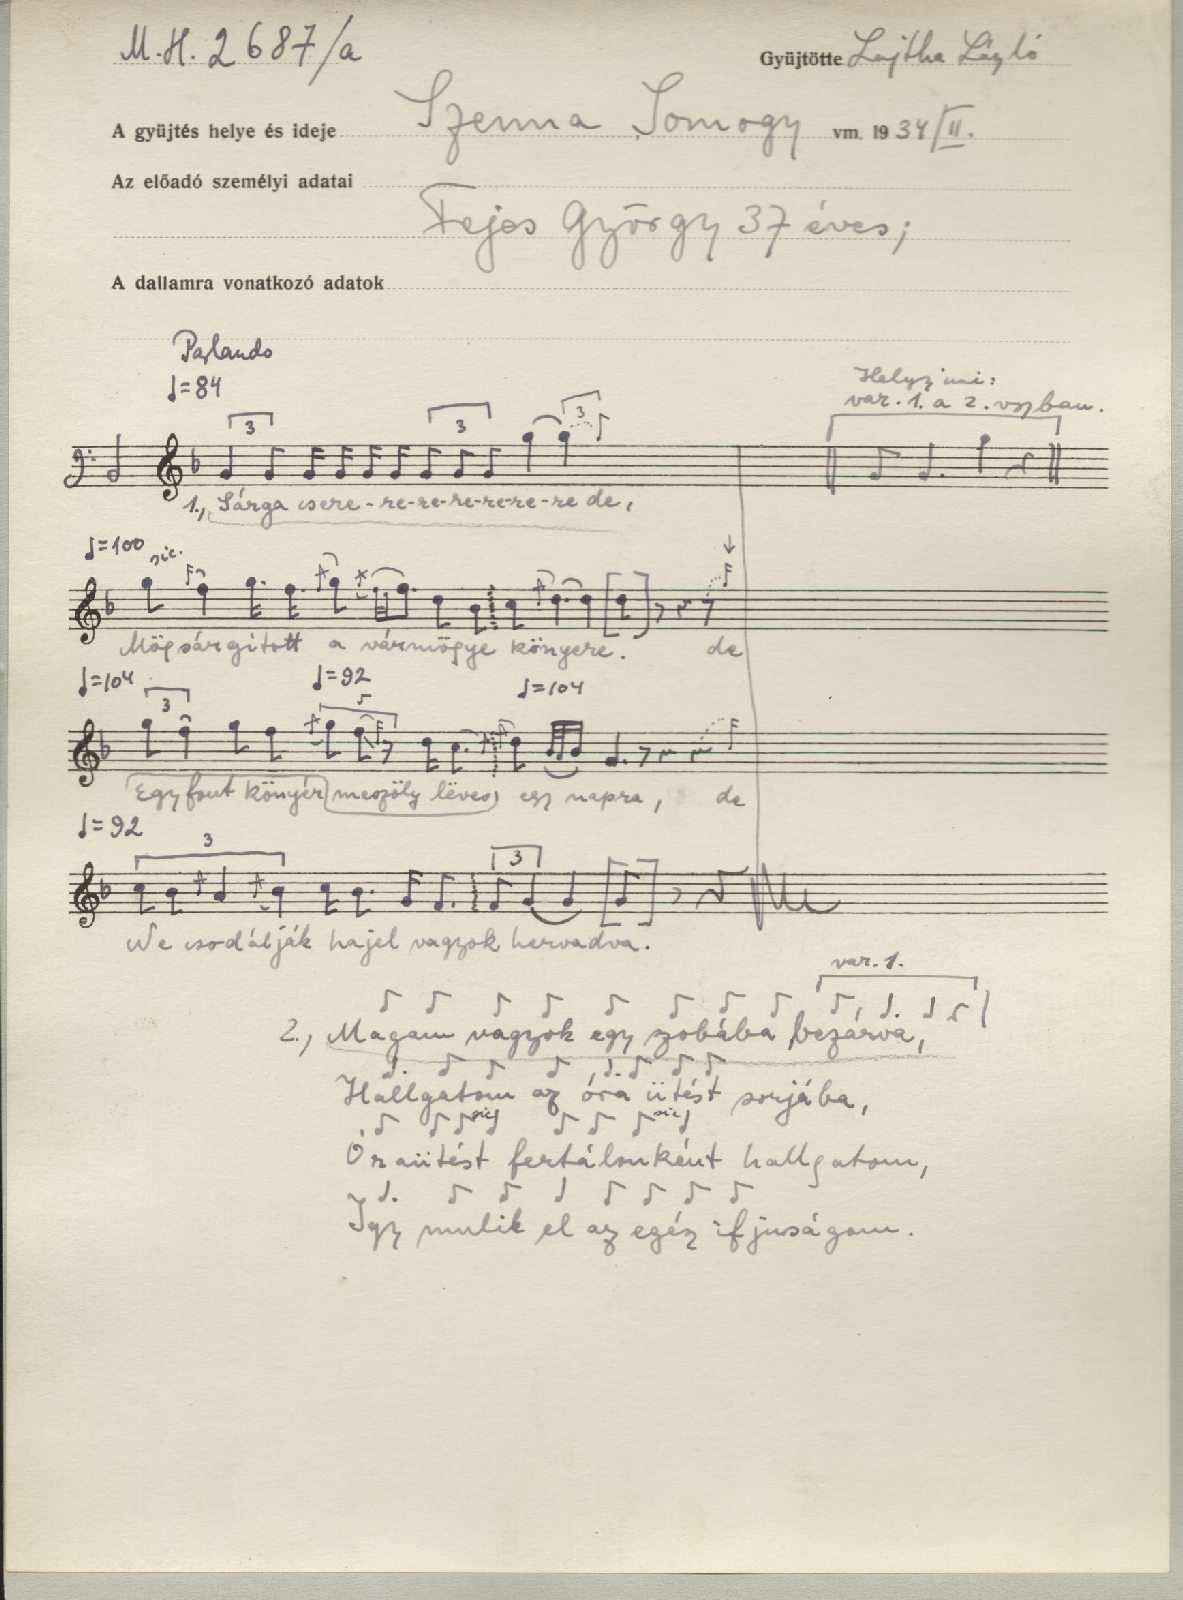 M.H. 2687/a
Gyüjtötte Lajtha László
A gyüjtés helye és ideje Szenna Somogy vm. 1934/II.
Az előadó személyi adatai
Fejes György 37 éves;
A dallamra vonatkozó adatok
Parlando
♩=84
var. 1. a 2. vszban.
3 3 3
1., Sárga csere-re-re-re-re-re-re de,
♩=100 sic.
Mögsárgitott a vármögye könyere. de
♩=104 ♩=92 ♩=104
3
Egy font könyér meszöly löves egy napra, de
♩=92
3 3
Ne csodálják hajel vagyok hervadva.
var. 1.
2., Magam vagyok egy szobába bezárva,
Hallgatom az óra ütést sorjába,
sic sic
Óraütést fertálonként hallgatom,
Igy mulik el az egész ifjuságom.